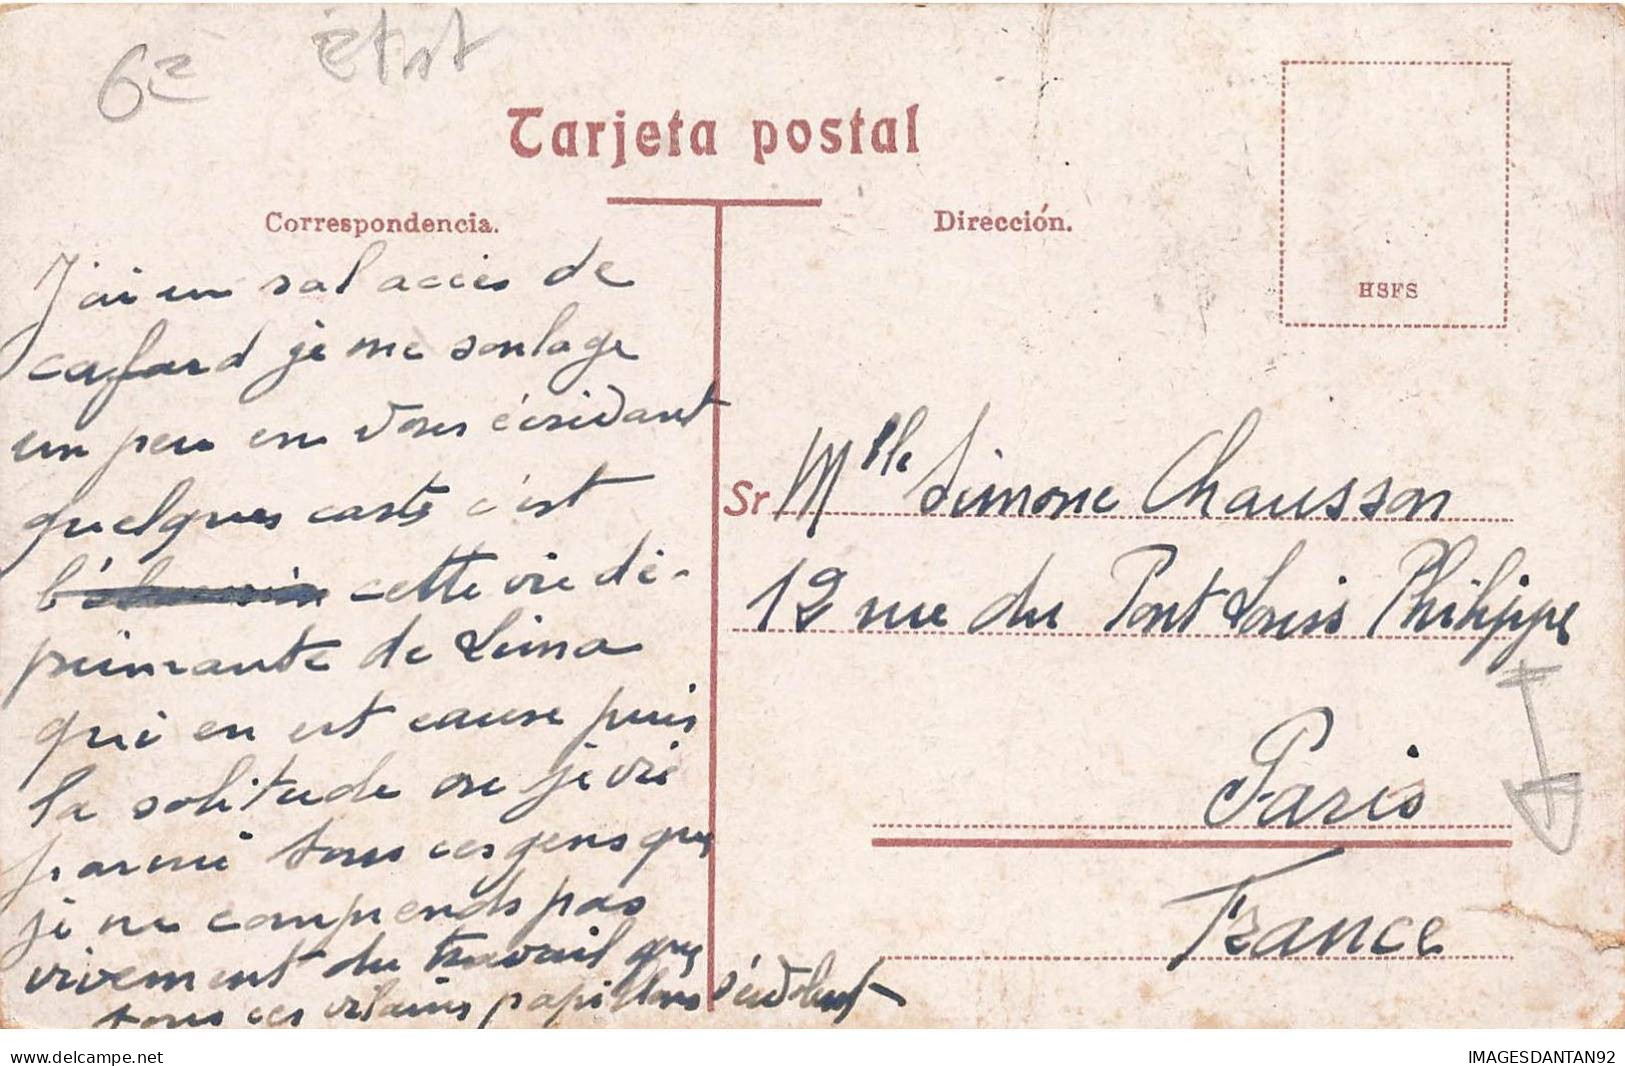 6e
Etat
Tarjeta postal
Correspondencia.
Dirección.
HSFS
J'ai un sal accès de
cafard je me soulage
un peu en vous écrivant
quelques carts c'est
cette vie dé-
primante de Lima
qui en est cause puis
la solitude ou je vis
parmi tous ces gens que
je ne comprends pas
vivement du travail que
tous ces vilains papillons s'envolent
Sr Mlle Simone Chausson
12 rue du Pont Louis Philippe
Paris
France
www.delcampe.net
IMAGESDANTAN92